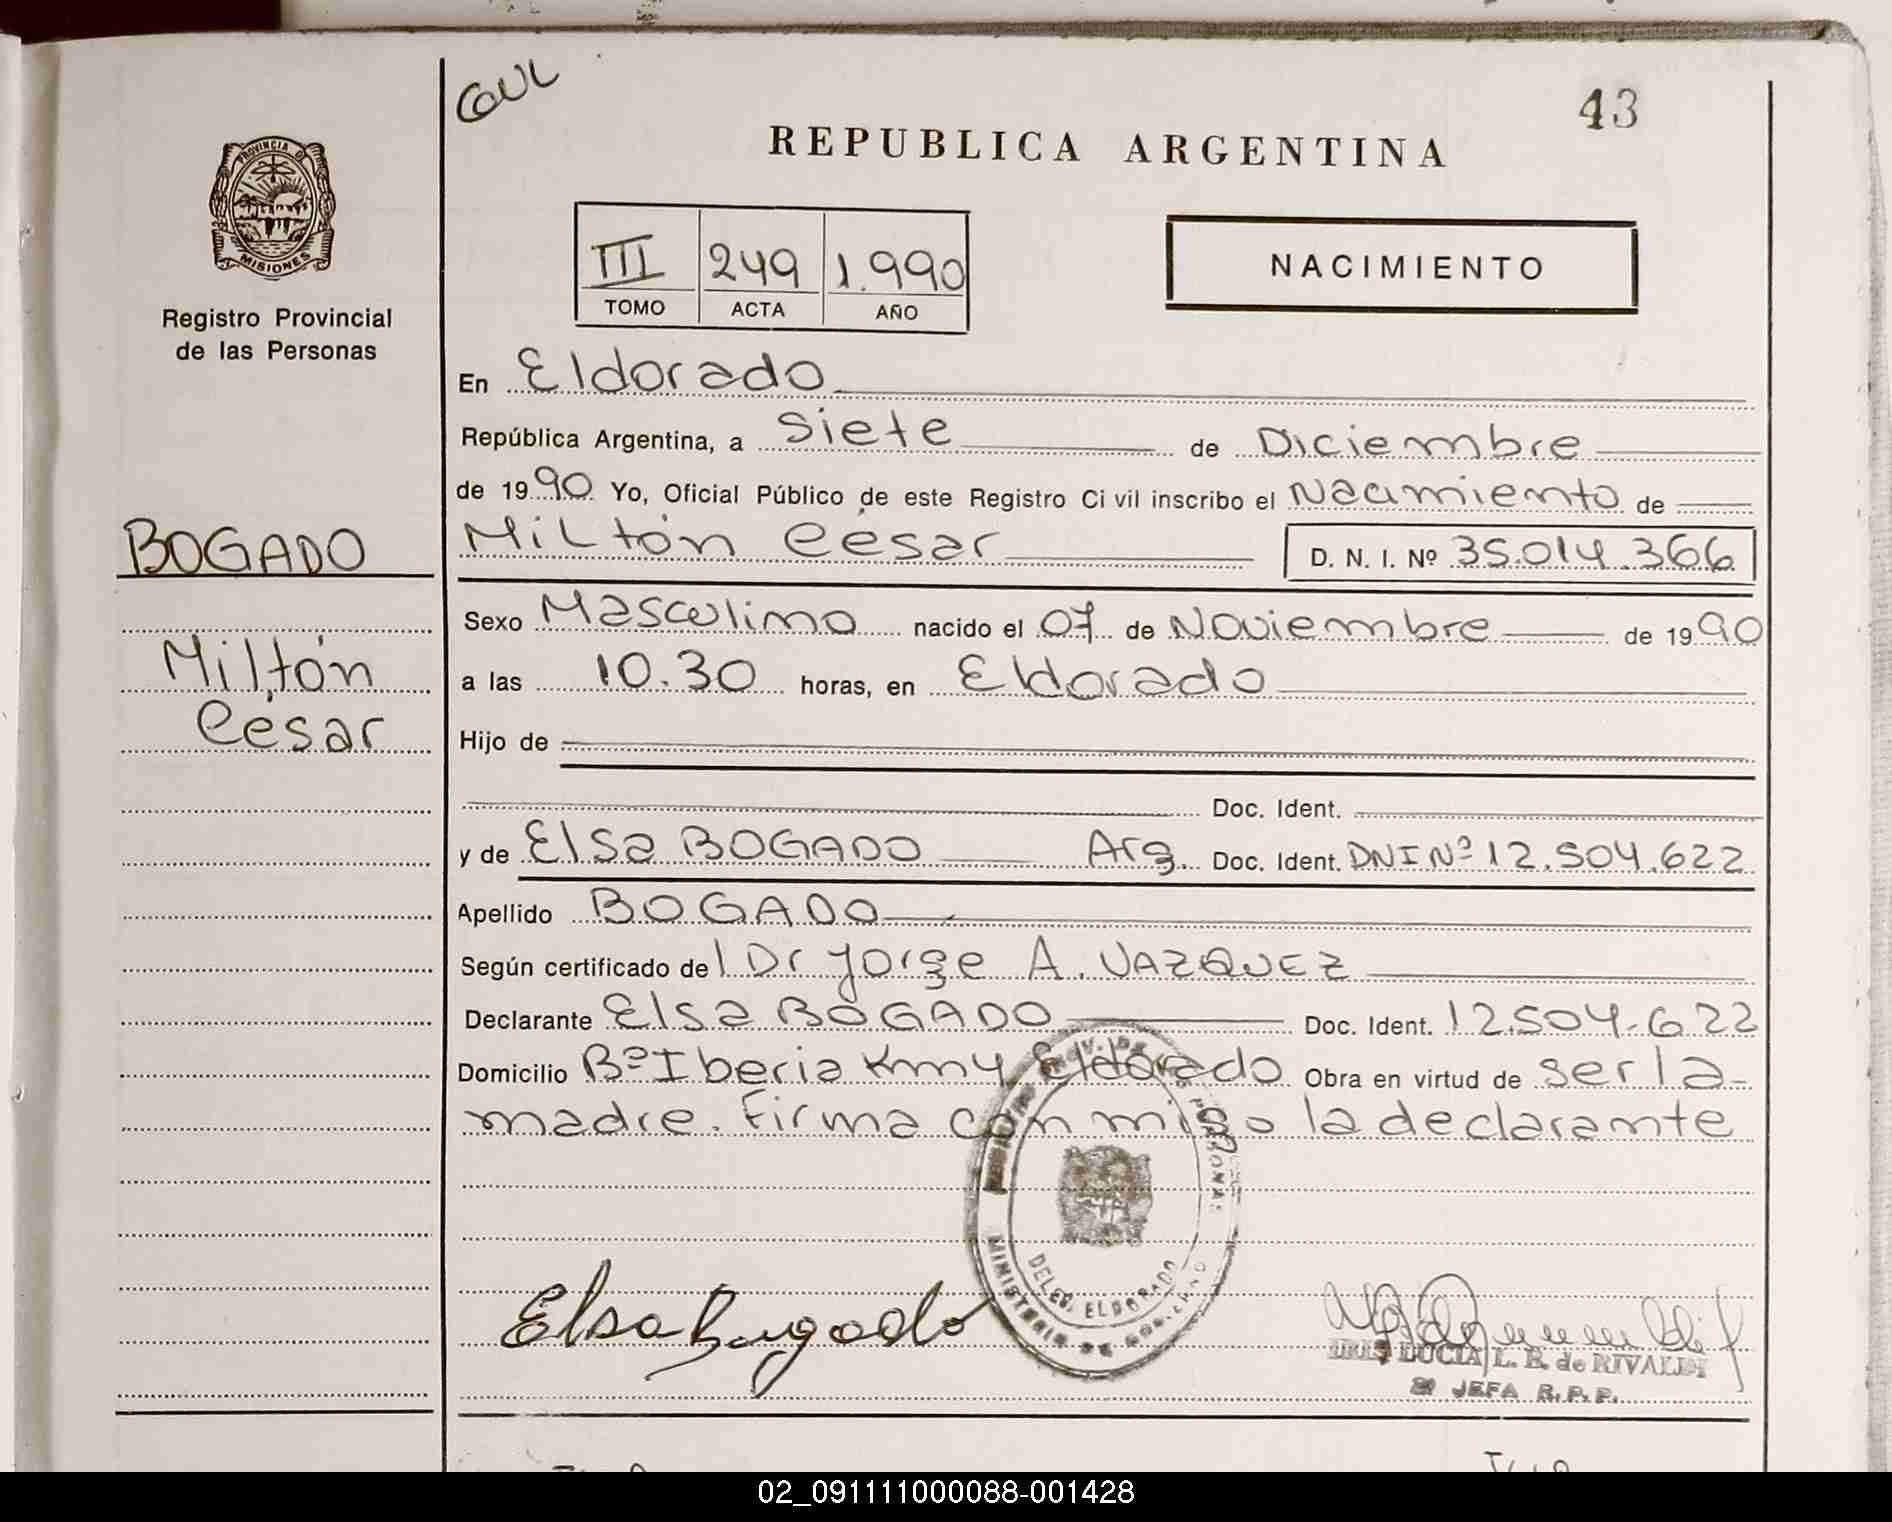 COUL
43
REPUBLICA ARGENTINA
PROVINCIA DE
MISIONES
Registro Provincial
de las Personas
III 249 1.990
TOMO ACTA AÑO
NACIMIENTO
En Eldorado
República Argentina, a Siete de Diciembre
de 1990 Yo, Oficial Público de este Registro Civil inscribo el Nacimiento de
Miltón César D. N. I. Nº 35.014.366
BOGADO
Miltón
César
Sexo Masculino nacido el 07 de Noviembre de 1990
a las 10.30 horas, en Eldorado
Hijo de
Doc. Ident.
y de Elsa BOGADO Arg. Doc. Ident. DNI Nº 12.504.622
Apellido BOGADO
Según certificado del Dr Jorge A. VAZQUEZ
Declarante Elsa BOGADO Doc. Ident. 12.504.622
Domicilio Bº Iberia Km 4 Eldorado Obra en virtud de ser la
madre. Firma conmigo la declarante
DELEG. ELDORADO
MINISTERIO DE GOBIERNO
Elsa Bogado
LUCIA L. B. de RIVALDI
2ª JEFA R.P.P.
02_091111000088-001428